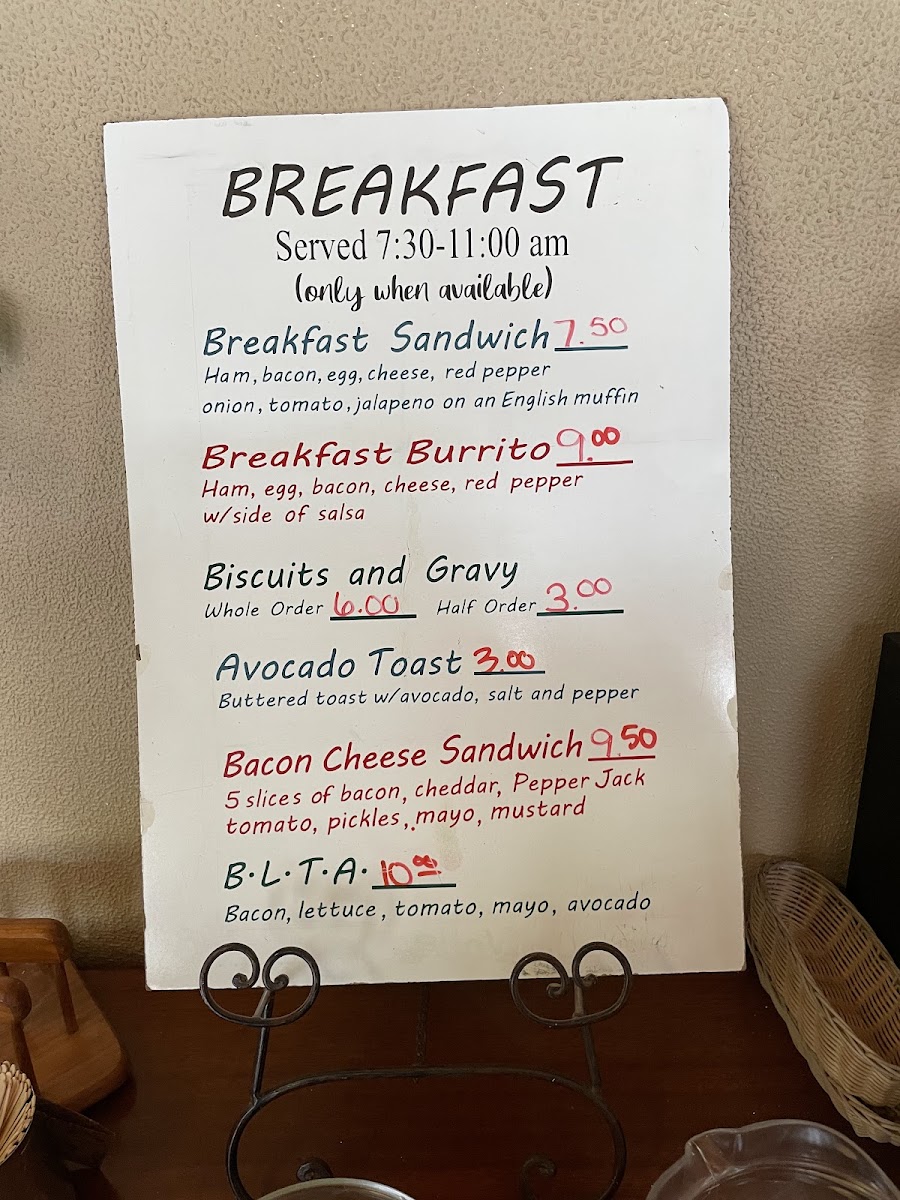 BREAKFAST
Served 7:30-11:00 am
(only when available)
Breakfast Sandwich 7.50
Ham, bacon, egg, cheese, red pepper
onion, tomato, jalapeno on an English muffin
Breakfast Burrito 9.00
Ham, egg, bacon, cheese, red pepper
w/side of salsa
Biscuits and Gravy
Whole Order 6.00 Half Order 3.00
Avocado Toast 3.00
Buttered toast w/avocado, salt and pepper
Bacon Cheese Sandwich 9.50
5 slices of bacon, cheddar, Pepper Jack
tomato, pickles, mayo, mustard
B·L·T·A· 10.00
Bacon, lettuce, tomato, mayo, avocado